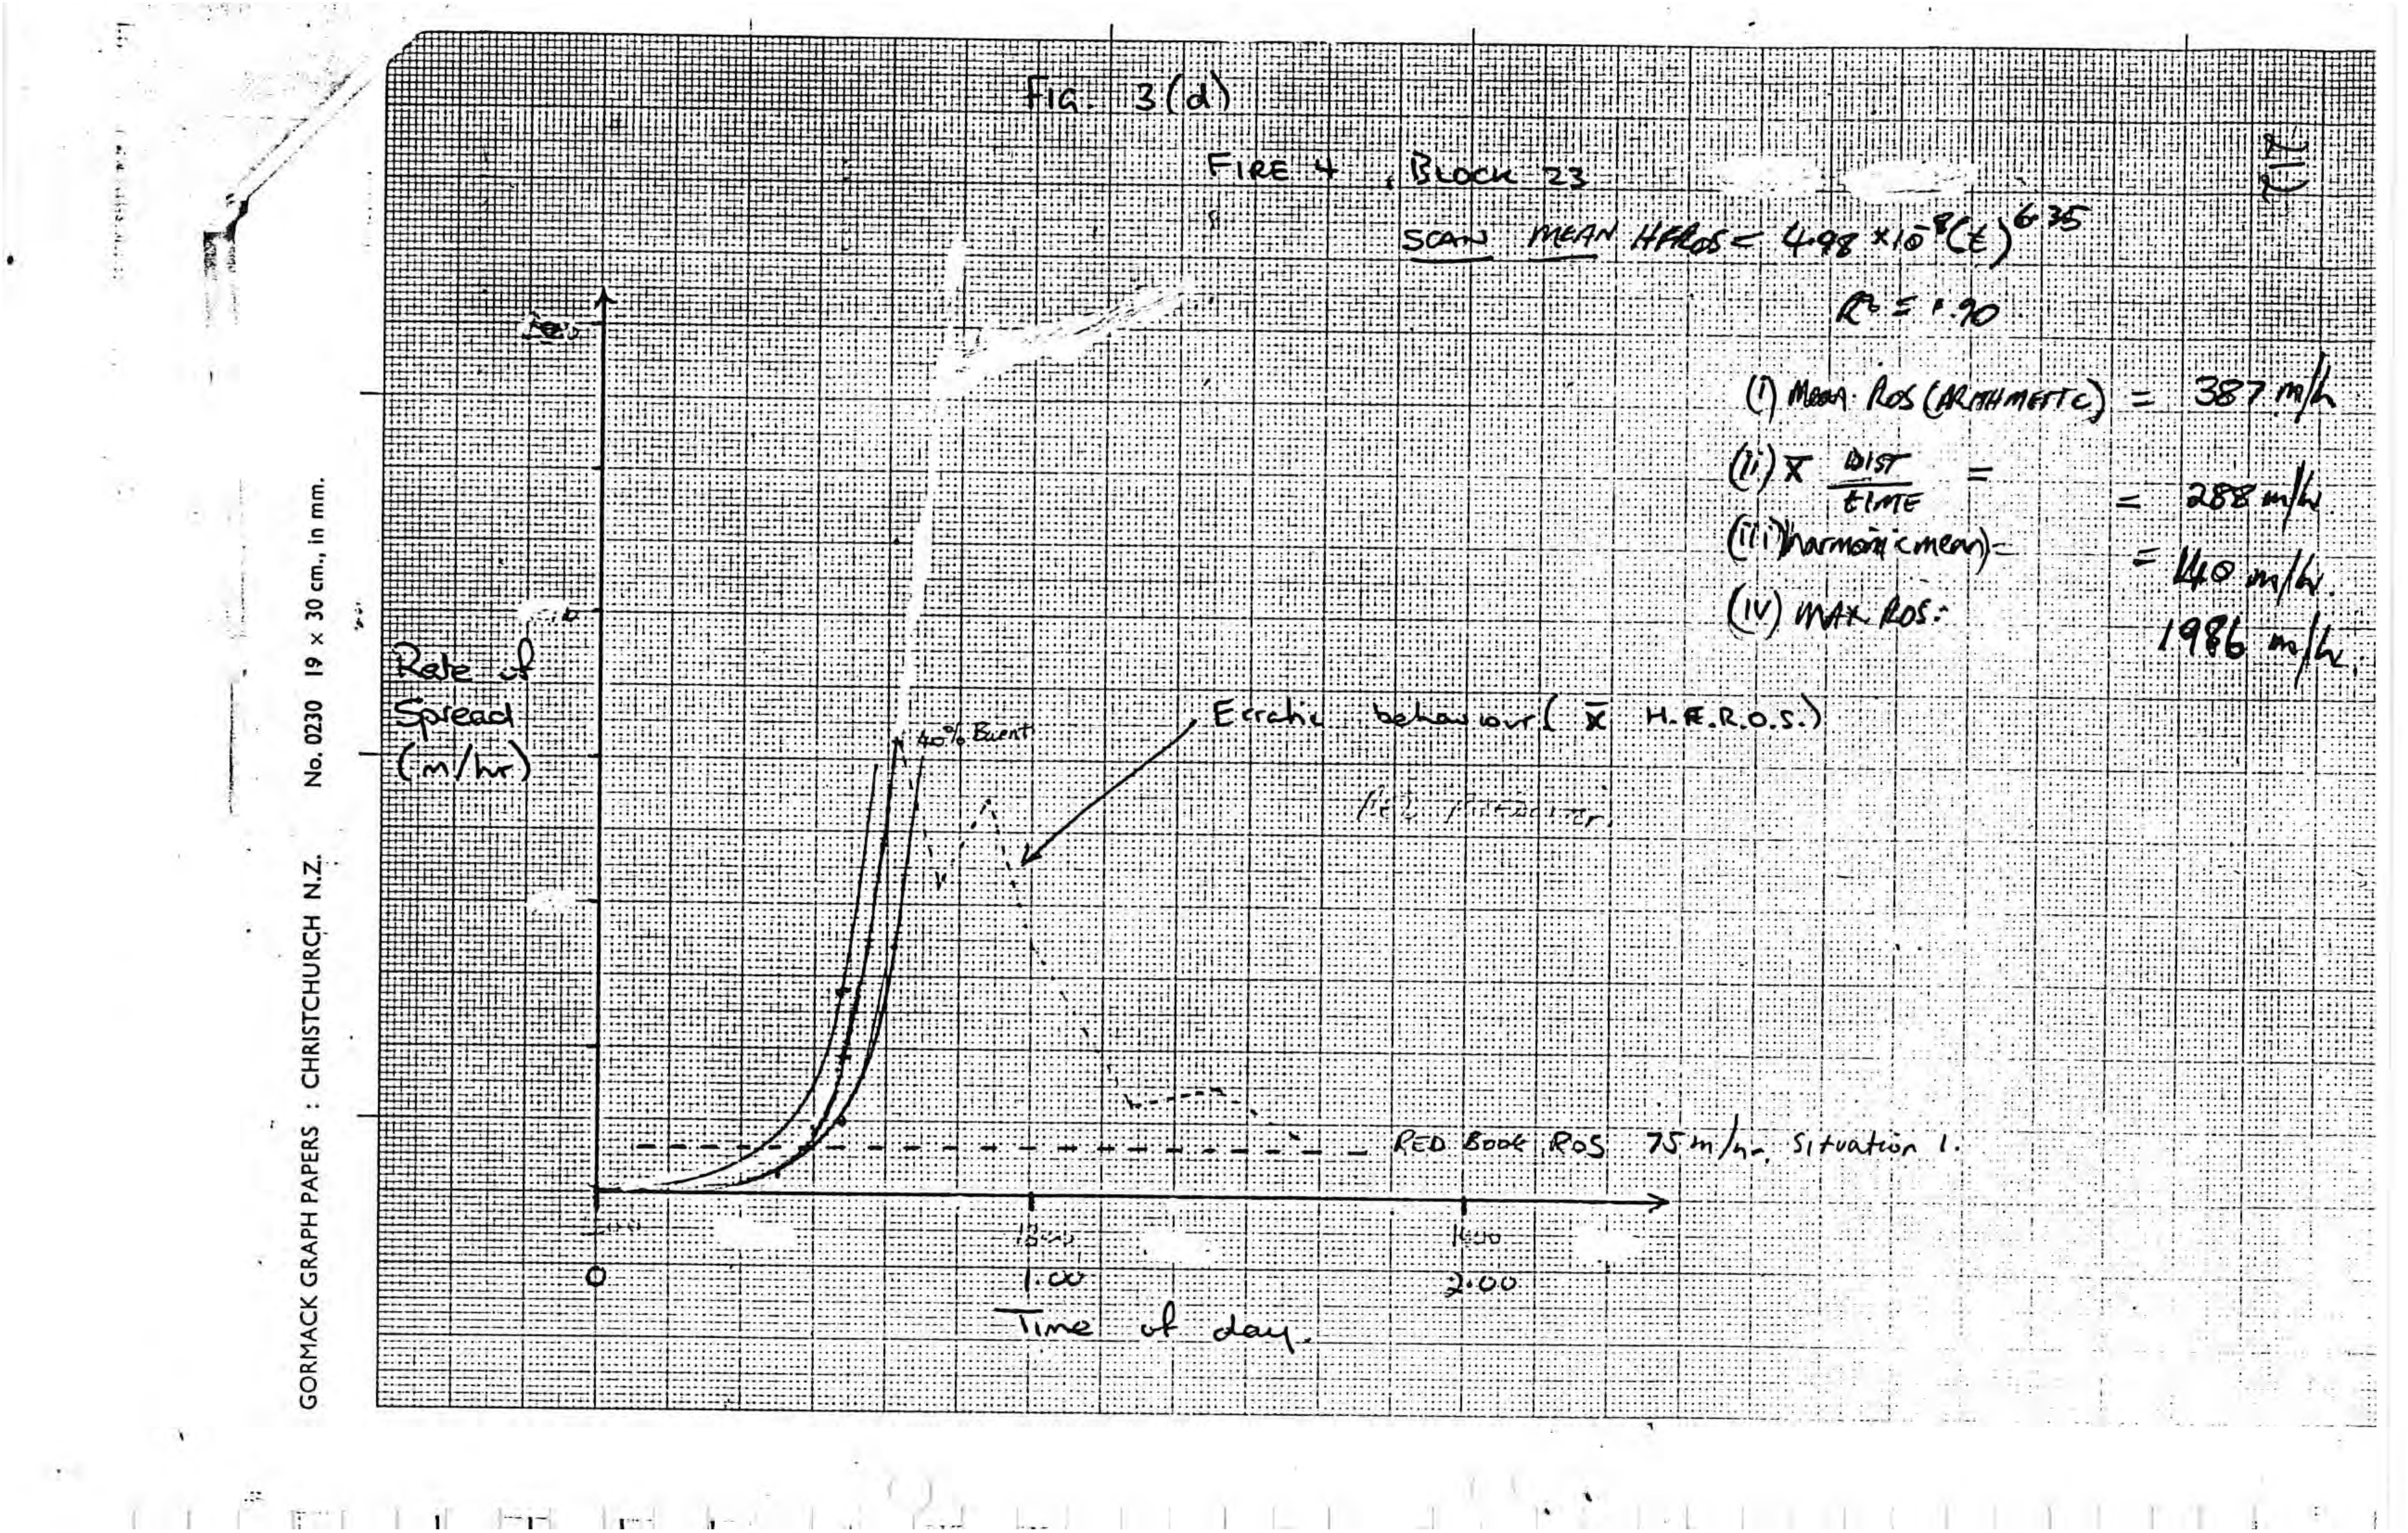 Fig. 3(d)
FIRE 4, BLOCK 23
SCAN MEAN HFROS = 4.98 × 10^-8 (t)^6.35
R² = .90
(i) Mean ROS (ARITHMETIC) = 387 m/h
(ii) x̄ DIST / TIME = = 288 m/hr
(iii) harmonic mean) = = 140 m/hr.
(iv) MAX ROS: 1986 m/hr.
Rate of
Spread
(m/hr)
40% Burnt
Erratic behaviour ( x̄ H.F.R.O.S.)
RED BOOK ROS 75 m/hr, situation 1.
1300
1400
0
1.00
2.00
Time of day.
GORMACK GRAPH PAPERS : CHRISTCHURCH N.Z. No. 0230 19 × 30 cm., in mm.